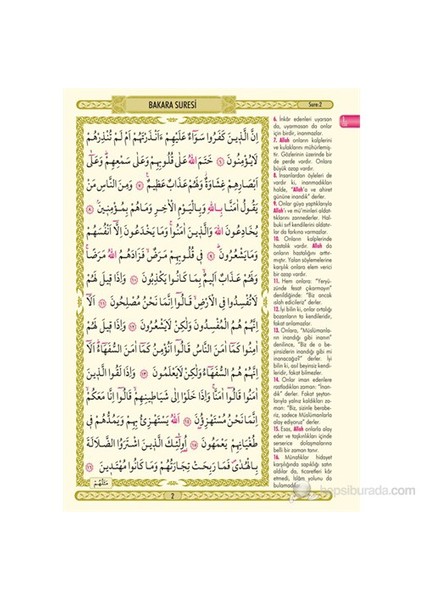 BAKARA SURESİ
Sure:2
اِنَّ الَّذ۪ينَ كَفَرُوا سَوَٓاءٌ عَلَيْهِمْ ءَاَنْذَرْتَهُمْ اَمْ لَمْ تُنْذِرْهُمْ
لَا يُؤْمِنُونَ ﴿٦﴾ خَتَمَ اللّٰهُ عَلٰى قُلُوبِهِمْ وَعَلٰى سَمْعِهِمْ وَعَلٰٓى
اَبْصَارِهِمْ غِشَاوَةٌ وَلَهُمْ عَذَابٌ عَظ۪يمٌ ﴿٧﴾ وَمِنَ النَّاسِ مَنْ
يَقُولُ اٰمَنَّا بِاللّٰهِ وَبِالْيَوْمِ الْاٰخِرِ وَمَا هُمْ بِمُؤْمِن۪ينَ ﴿٨﴾
يُخَادِعُونَ اللّٰهَ وَالَّذ۪ينَ اٰمَنُوا وَمَا يَخْدَعُونَ اِلَّٓا اَنْفُسَهُمْ
وَمَا يَشْعُرُونَ ﴿٩﴾ ف۪ي قُلُوبِهِمْ مَرَضٌ فَزَادَهُمُ اللّٰهُ مَرَضًا
وَلَهُمْ عَذَابٌ اَل۪يمٌ بِمَا كَانُوا يَكْذِبُونَ ﴿١٠﴾ وَاِذَا ق۪يلَ لَهُمْ
لَا تُفْسِدُوا فِي الْاَرْضِ قَالُٓوا اِنَّمَا نَحْنُ مُصْلِحُونَ ﴿١١﴾ اَلَٓا
اِنَّهُمْ هُمُ الْمُفْسِدُونَ وَلٰكِنْ لَا يَشْعُرُونَ ﴿١٢﴾ وَاِذَا ق۪يلَ لَهُمْ
اٰمِنُوا كَمَٓا اٰمَنَ النَّاسُ قَالُٓوا اَنُؤْمِنُ كَمَٓا اٰمَنَ السُّفَهَٓاءُ اَلَٓا
اِنَّهُمْ هُمُ السُّفَهَٓاءُ وَلٰكِنْ لَا يَعْلَمُونَ ﴿١٣﴾ وَاِذَا لَقُوا الَّذ۪ينَ
اٰمَنُوا قَالُٓوا اٰمَنَّا وَاِذَا خَلَوْا اِلٰى شَيَاط۪ينِهِمْ قَالُٓوا اِنَّا مَعَكُمْ
اِنَّمَا نَحْنُ مُسْتَهْزِؤُ۫نَ ﴿١٤﴾ اَللّٰهُ يَسْتَهْزِئُ بِهِمْ وَيَمُدُّهُمْ ف۪ي
طُغْيَانِهِمْ يَعْمَهُونَ ﴿١٥﴾ اُو۬لٰٓئِكَ الَّذ۪ينَ اشْتَرَوُا الضَّلَالَةَ
بِالْهُدٰى فَمَا رَبِحَتْ تِجَارَتُهُمْ وَمَا كَانُوا مُهْتَد۪ينَ ﴿١٦﴾
مَثَلُهُمْ
2
6. İnkâr edenleri uyarsan
da, uyarmasan da onlar
için birdir, inanmazlar.
7. Allah onların kalplerini
ve kulaklarını mühürlemiş-
tir. Gözlerinin üzerinde bir
de perde vardır. Onlara
büyük azap vardır.
8. İnsanlardan öyleleri de
vardır ki, inanmadıkları
halde, "Allah'a ve ahiret
gününe inandık" derler.
9. Onlar güya yaptıklarıyla
Allah'ı ve mü'minleri aldat-
tıklarını zannederler. Hal-
buki sırf kendilerini aldatır-
lar da farkına varmazlar.
10. Onların kalplerinde
hastalık vardır. Allah da
onların hastalığını arttır-
mıştır. Yalan söylemelerine
karşılık onlara elem verici
bir azap vardır.
11. Hem onlara: "Yeryü-
zünde fesat çıkarmayın"
denildiğinde: "Biz ancak
ıslah edicileriz" derler.
12. İyi bilin ki, onlar ortalığı
bozanların ta kendileridir,
fakat anlamazlar.
13. Onlara, "Müslümanla-
rın inandığı gibi inanın"
denilince, "Biz de o be-
yinsizlerin inandığı gibi mi
inanacağız!" derler. İyi
bilin ki, asıl beyinsiz kendi-
leridir, fakat bilmezler.
14. Onlar iman edenlere
rastladıkları zaman: "İnan-
dık" derler. Fakat şeytan-
larıyla yalnız kaldıkları za-
man: "Biz, sizinle berabe-
riz, sadece Müslümanlarla
alay ediyoruz" derler.
15. Esas, Allah onlarla alay
eder ve taşkınlıkları içinde
serserice dolaşmalarına
belli bir zaman tanır.
16. Münafıklar hidayet
karşılığında sapıklığı satın
aldılar da, ticaretleri kâr
etmedi, İslam yolunu da
bulamadılar.
hepsiburada.com